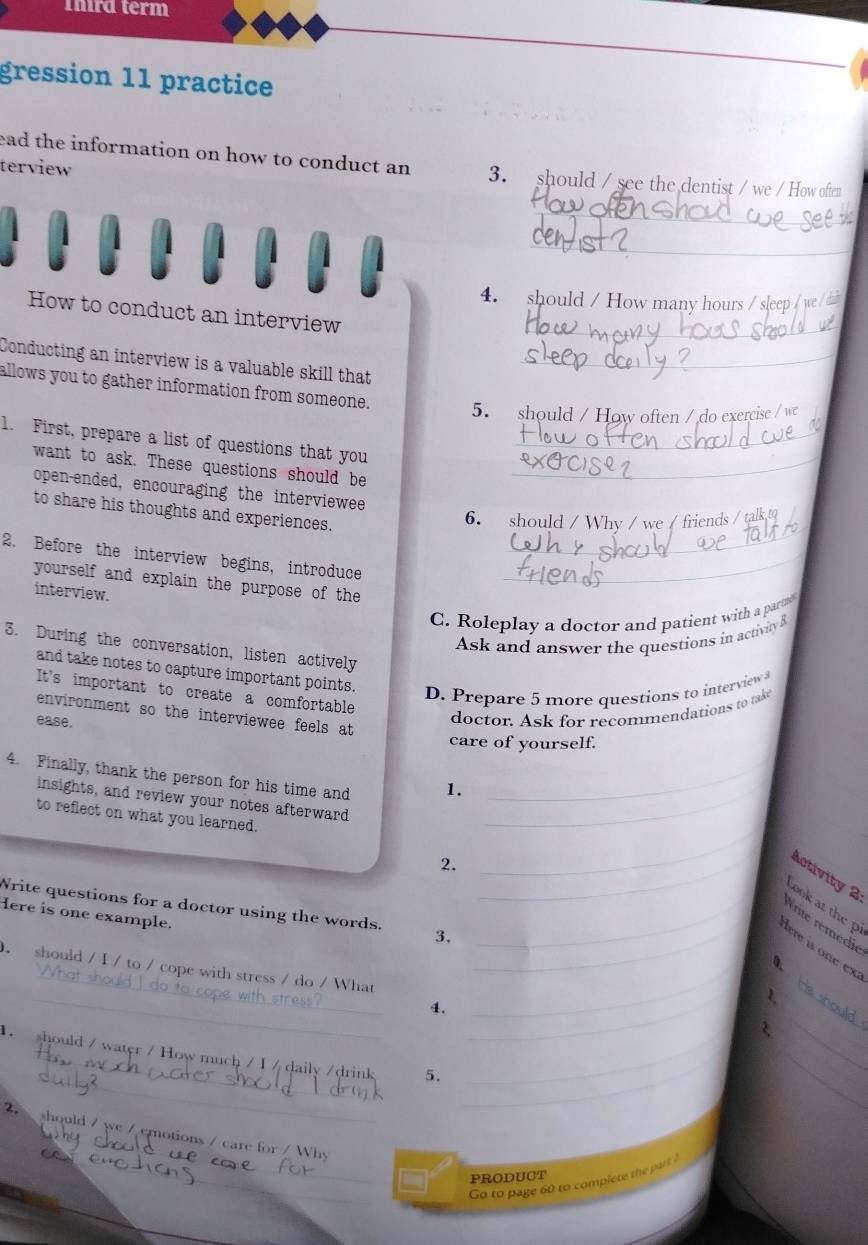 Third term
gression 11 practice
ead the information on how to conduct an
terview
How to conduct an interview
Conducting an interview is a valuable skill that
allows you to gather information from someone.
1. First, prepare a list of questions that you
want to ask. These questions should be
open-ended, encouraging the interviewee
to share his thoughts and experiences.
2. Before the interview begins, introduce
yourself and explain the purpose of the
interview.
3. During the conversation, listen actively
and take notes to capture important points.
It's important to create a comfortable
environment so the interviewee feels at
ease.
4. Finally, thank the person for his time and
insights, and review your notes afterward
to reflect on what you learned.
Write questions for a doctor using the words.
Here is one example.
0. should / I / to / cope with stress / do / What
What should I do to cope with stress?
1. should / water / How much / I / daily / drink
How much water should I drink
daily?
2. should / we / emotions / care for / Why
Why should we care for
emotions
3. should / see the dentist / we / How often
How often shoud we see the
dentist?
4. should / How many hours / sleep / we / daily
How many hours should we
sleep daily?
5. should / How often / do exercise / we
How often should we do
exercise?
6. should / Why / we / friends / talk to
Why should we talk to
friends
C. Roleplay a doctor and patient with a partner
Ask and answer the questions in activity B
D. Prepare 5 more questions to interview a
doctor. Ask for recommendations to take
care of yourself.
1.
2.
3.
4.
5.
PRODUCT
Go to page 60 to complete the part 2
Activity 2:
Look at the pi
Write remedies
Here is one exa
0. He should
1.
2.